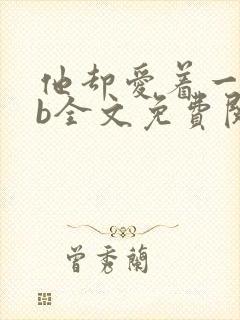 他却爱着一
b全文免費閱
曾秀蘭